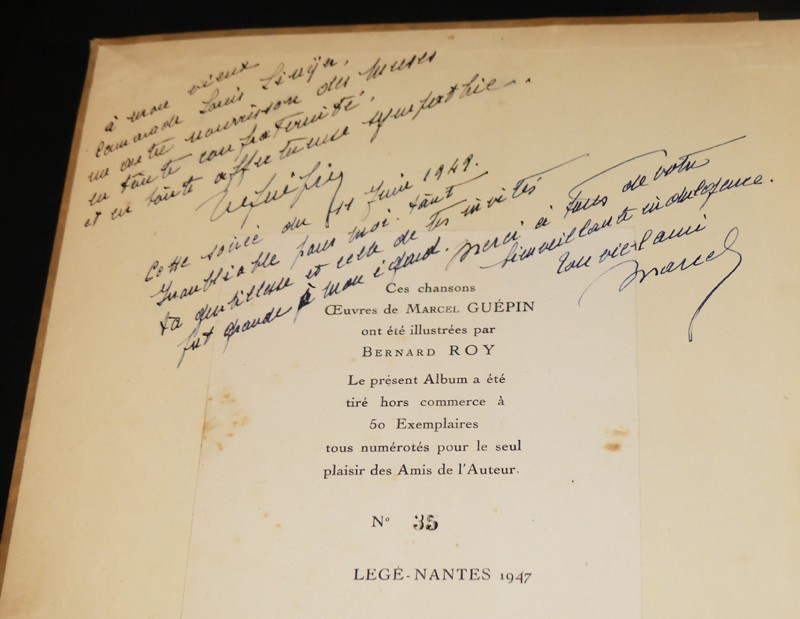 à mon vieux
Camarade Louis
un autre nourrisson des muses
en toute confraternité,
et en toute affectueuse sympathie.
Cette soirée du 11 Juin 1949.
Inoubliable pour moi. tant
ta gentillesse et celle de tes invités
fut grande à mon égard. merci à tous de votre
bienveillante indulgence.
ton vieil ami
Marcel
Ces chansons
Œuvres de MARCEL GUÉPIN
ont été illustrées par
BERNARD ROY
Le présent Album a été
tiré hors commerce à
50 Exemplaires
tous numérotés pour le seul
plaisir des Amis de l'Auteur.
N° 35
LEGÉ-NANTES 1947